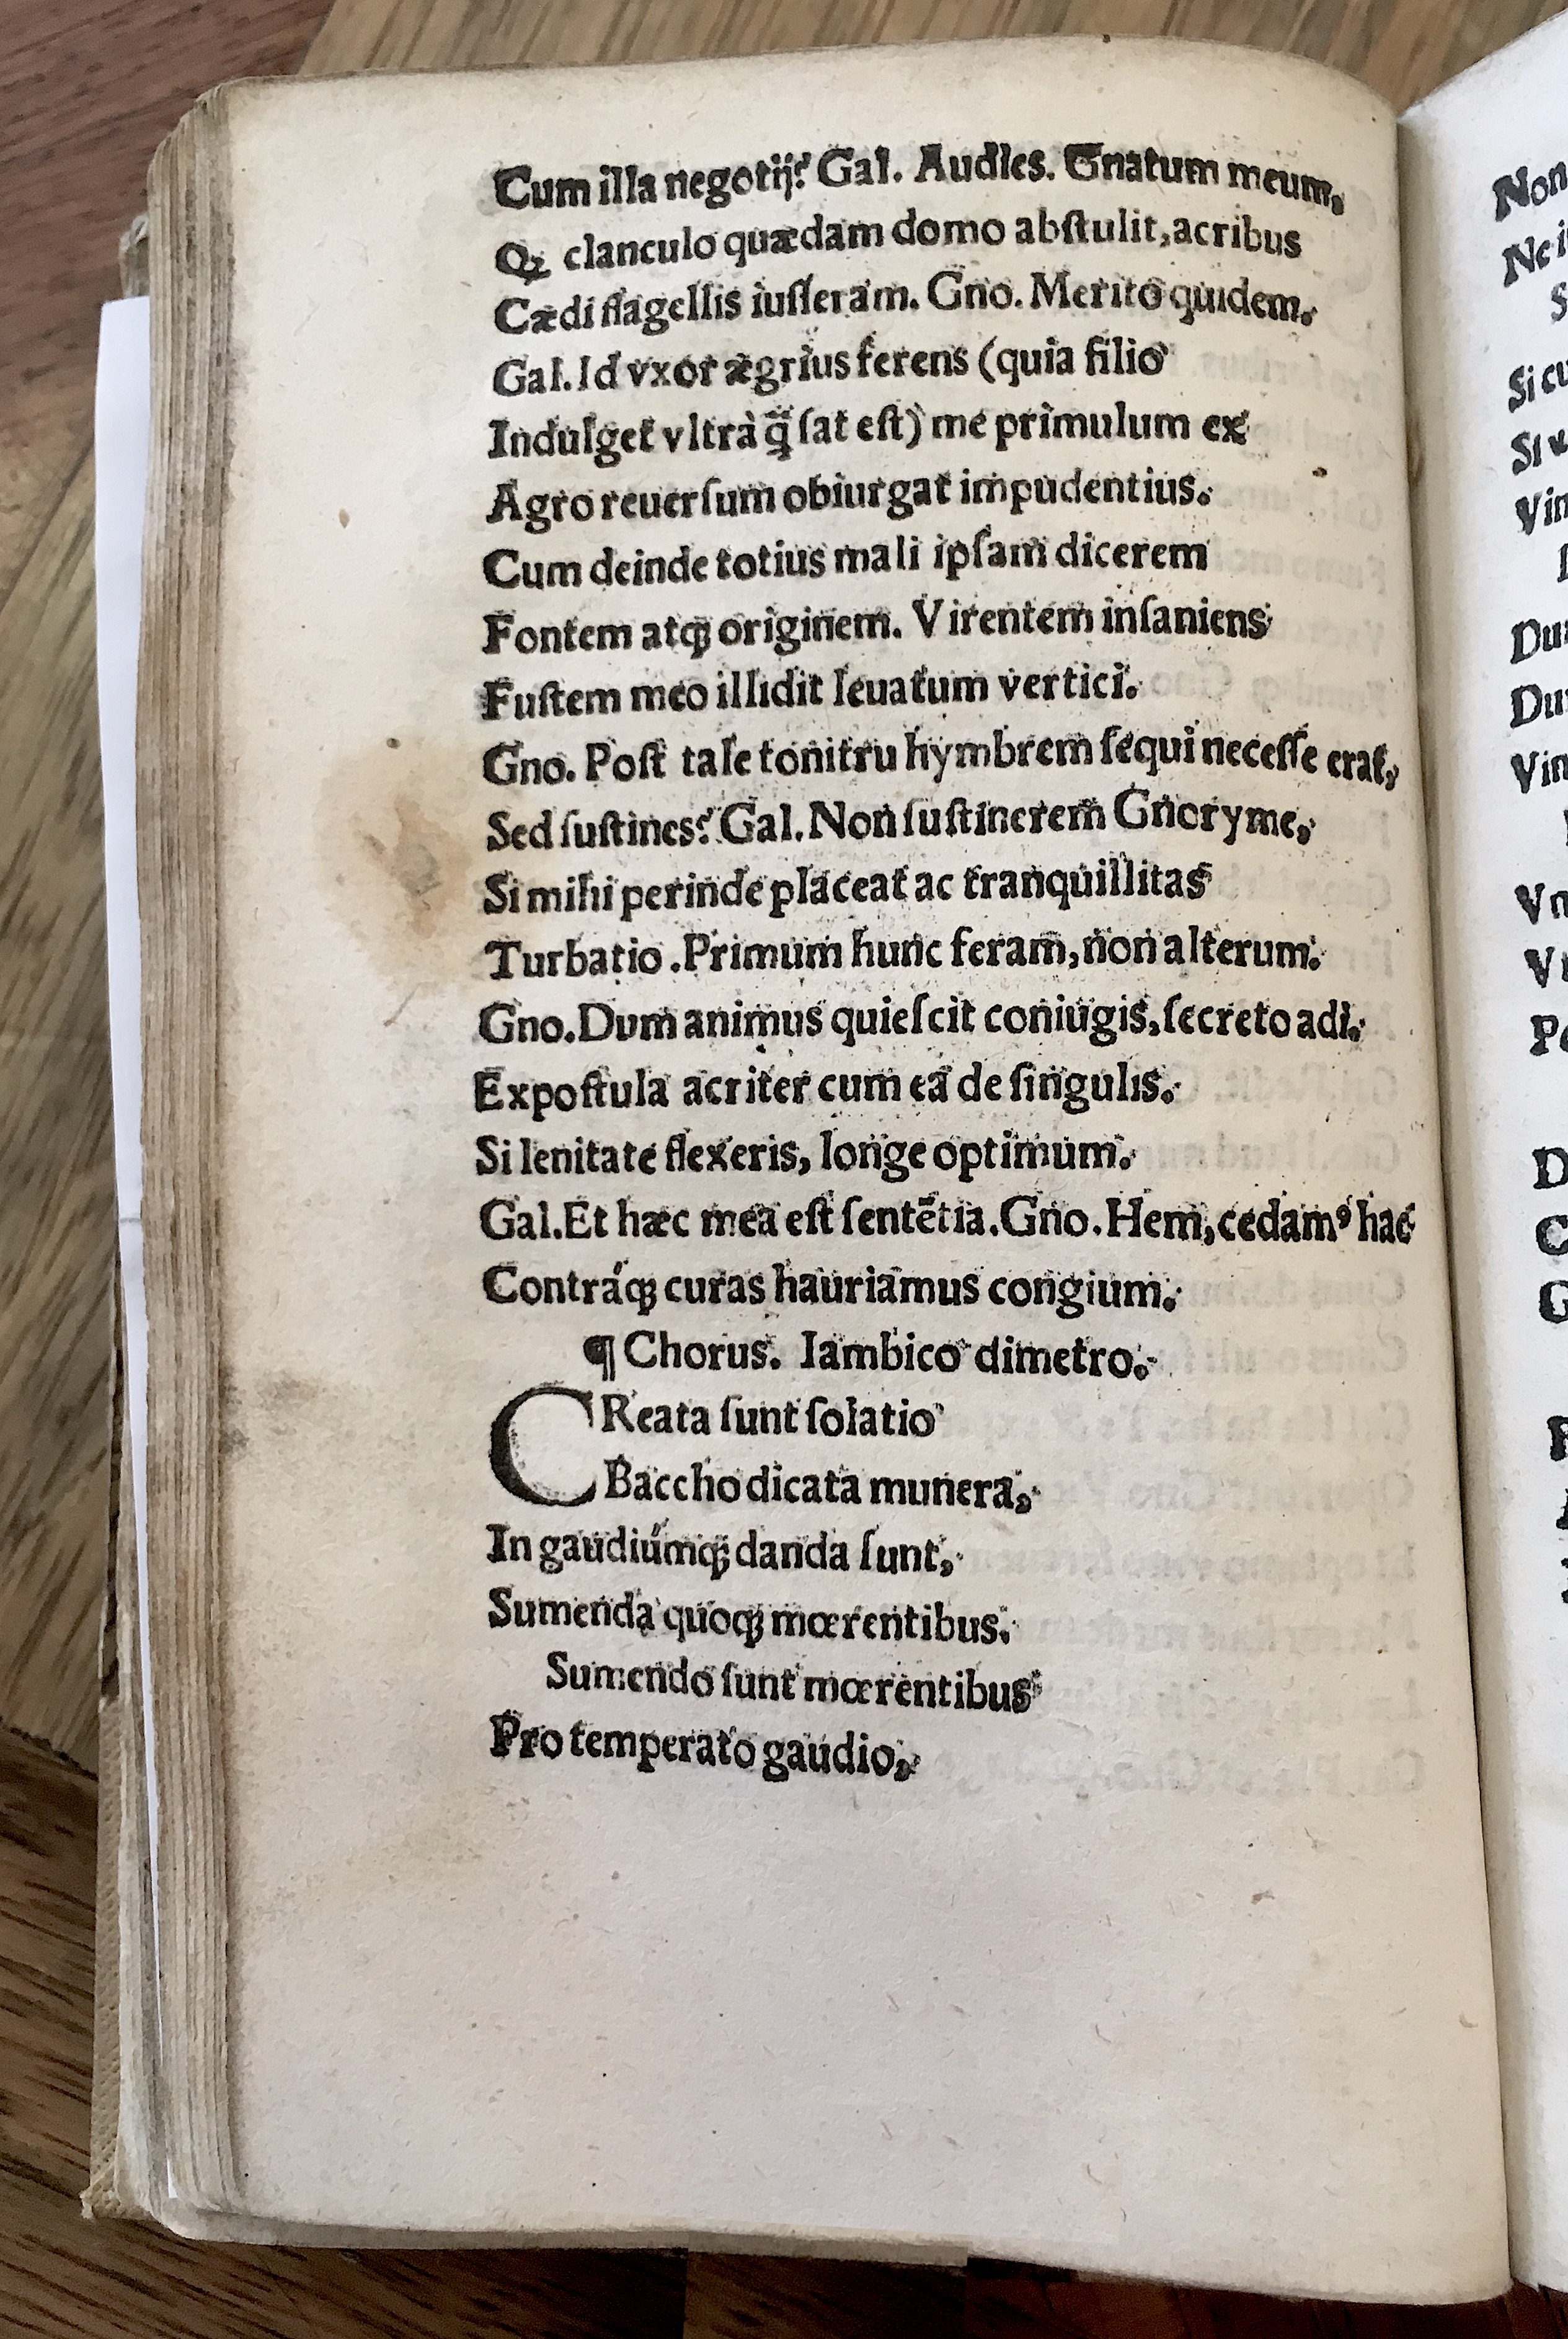 Cum illa negotij? Gal. Audies. Gnatum meum,
Qꝫ clanculo quædam domo abſtulit, acribus
Cædi flagellis iuſſeram. Gno. Merito quidem.
Gal. Id vxor ægrius ferens (quia filio
Indulget vltrà q̃ ſat eſt) me primulum ex
Agro reuerſum obiurgat impudentius.
Cum deinde totius mali ipſam dicerem
Fontem atqꝫ originem. Virentem inſaniens
Fuſtem meo illidit leuatum vertici.
Gno. Poſt tale tonitru hymbrem ſequi neceſſe erat,
Sed ſuſtines? Gal. Non ſuſtinerem Gnoryme,
Si mihi perinde placeat ac tranquillitas
Turbatio. Primum hunc feram, non alterum.
Gno. Dum animus quieſcit coniugis, ſecreto adi.
Expoſtula acriter cum ea de ſingulis.
Si lenitate flexeris, longe optimum.
Gal. Et hæc mea eſt ſentẽtia. Gno. Hem, cedamꝰ hac
Contráqꝫ curas hauriamus congium.
¶ Chorus. Iambico dimetro.
CReata ſunt ſolatio
Baccho dicata munera,
In gaudiúmqꝫ danda ſunt,
Sumenda quoqꝫ mœrentibus.
Sumendo ſunt mœrentibus
Pro temperato gaudio,
Non
Si cu
Vin
Vin